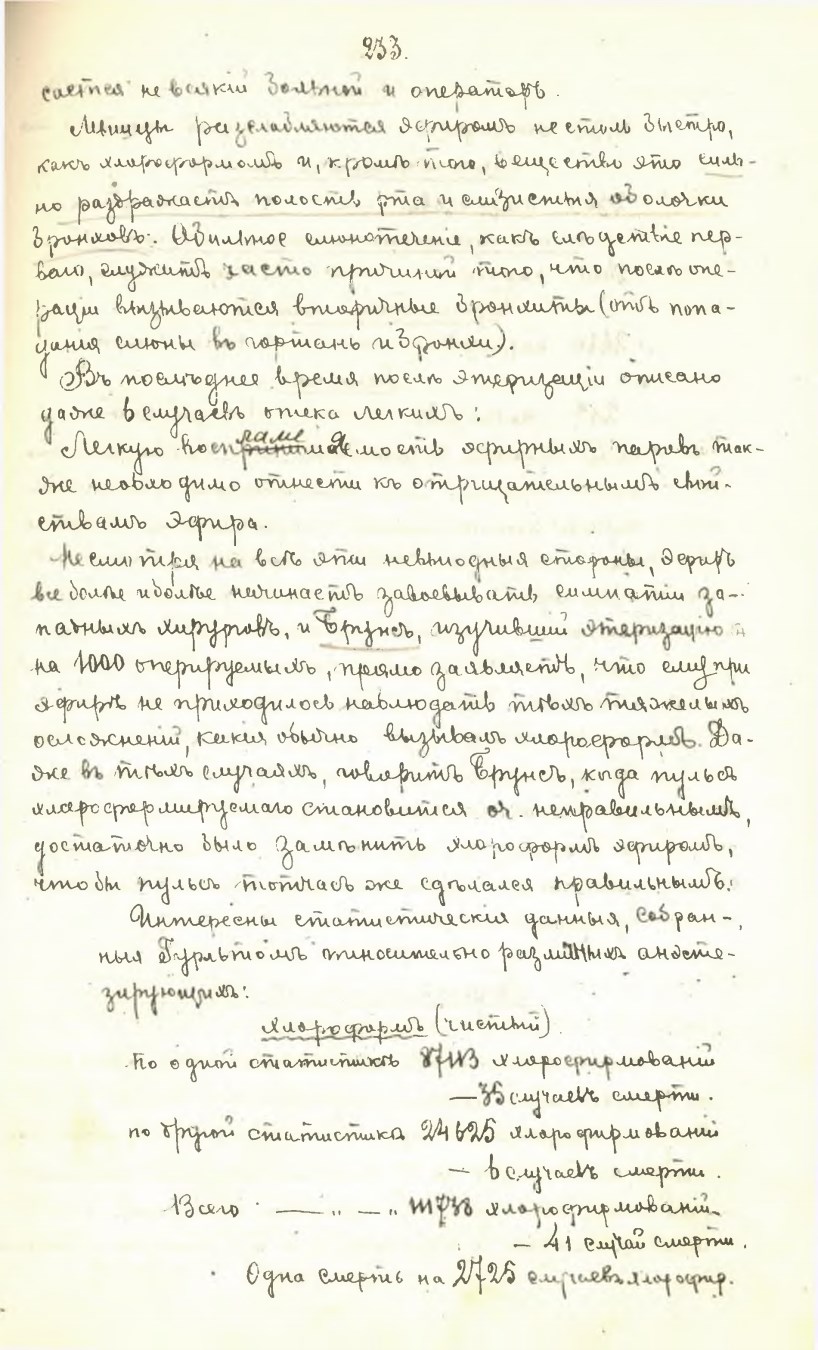 233.
сается не всякій больной и операторъ.
Мышцы разслабляются эфиромъ не столь быстро,
какъ хлороформомъ и, кромѣ того, вещество это силь-
но раздражаетъ полость рта и слизистыя оболочки
бронховъ. Обильное слюнотеченіе, какъ слѣдствіе пер-
ваго, служитъ часто причиной того, что послѣ опе-
раціи вызываются вторичные бронхиты (отъ попа-
данія слюны въ гортань и бронхи).
Въ послѣднее время послѣ этеризаціи описано
даже 6 случаевъ отека легкихъ:
Легкую воспламеняемость эфирныхъ паровъ так-
же необходимо отнести къ отрицательнымъ свой-
ствамъ эфира.
Несмотря на всѣ эти невыгодныя стороны, эфиръ
все болѣе и болѣе начинаетъ завоевывать симпатіи за-
падныхъ хирурговъ, и Брунсъ, изучившій этеризацію
на 1000 оперируемыхъ, прямо заявляетъ, что ему при
эфирѣ не приходилось наблюдать тѣхъ тяжелыхъ
осложненій, какія обычно вызывалъ хлороформъ. Да-
же въ тѣхъ случаяхъ, говоритъ Брунсъ, когда пульсъ
хлороформируемаго становится оч. неправильнымъ,
достаточно было замѣнить хлороформъ эфиромъ,
чтобы пульсъ тотчасъ же сдѣлался правильнымъ.
Интересны статистическія данныя, собран-
ныя Гурльтомъ относительно различныхъ анэсте-
зирующихъ:
хлороформъ (чистый)
По одной статистикѣ 87113 хлороформированій
— 35 случаевъ смерти.
по другой статистикѣ 24625 хлороформированій
— 6 случаевъ смерти.
Всего — „ — „ 111738 хлороформированій
— 41 случай смерти.
Одна смерть на 2725 случаевъ хлороформ.